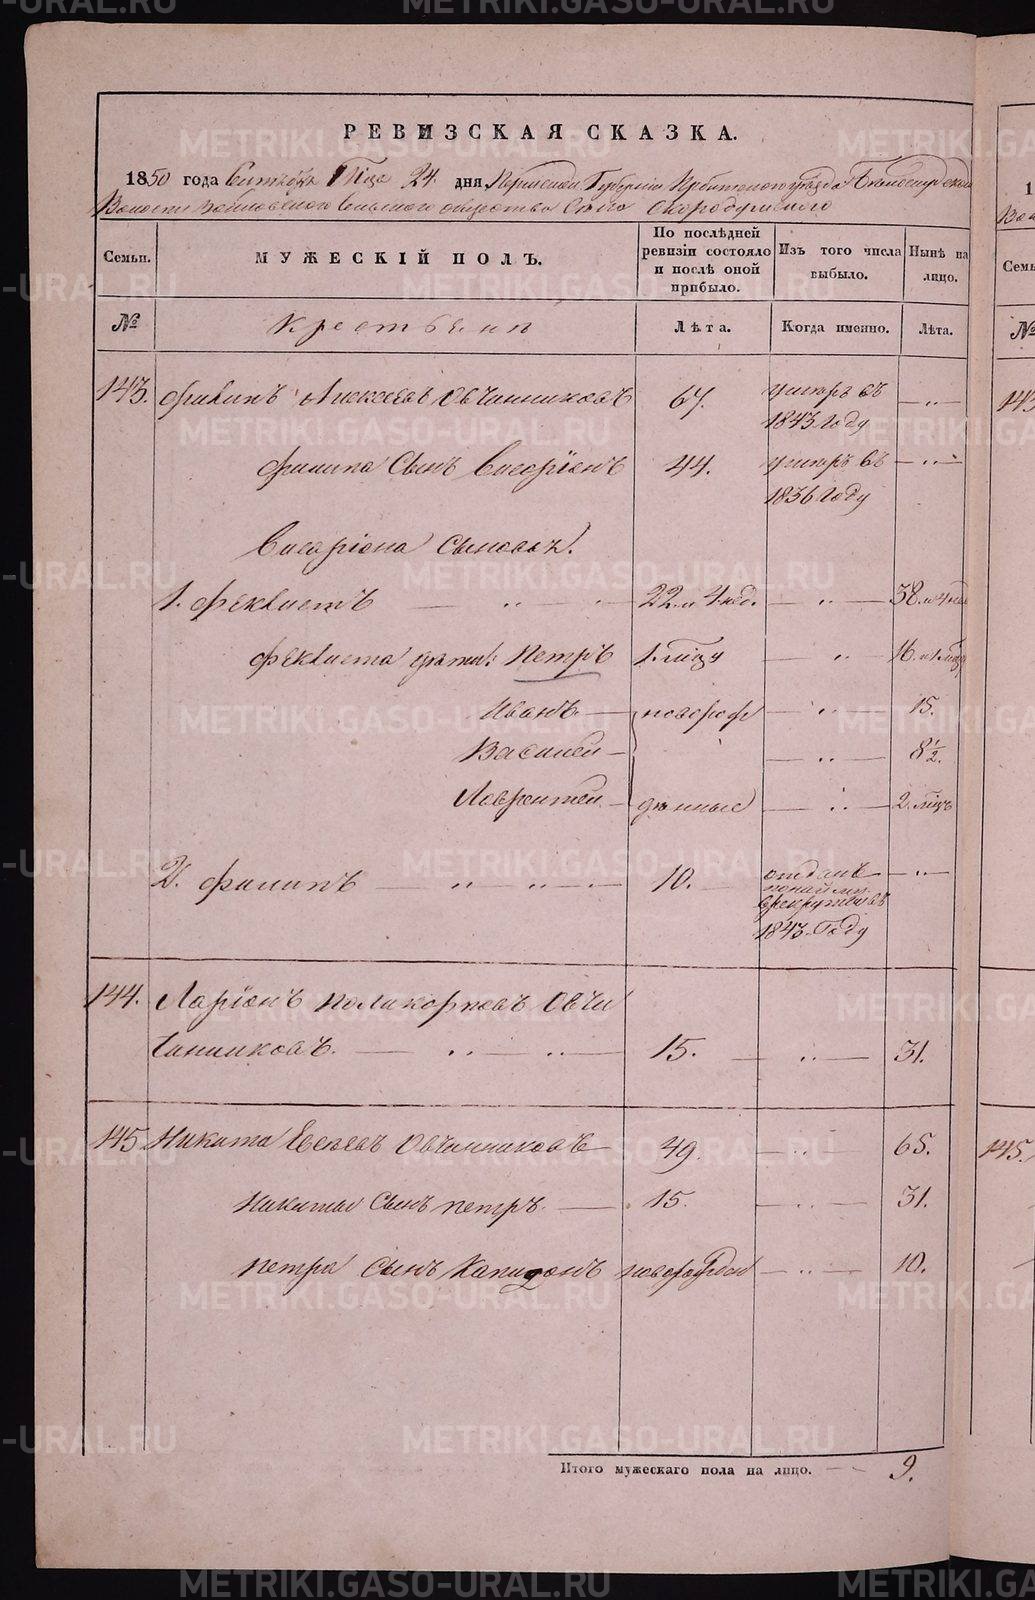 РЕВИЗСКАЯ СКАЗКА.
1850 года Сентября Мца 24. дня Пермской Губернии Ирбитского уезда
Волости Сельского общества Села Скородумского
Семьи.
МУЖЕСКІЙ ПОЛЪ.
По послѣдней ревизіи состояло и послѣ оной прибыло.
Изъ того числа выбыло.
Нынѣ на лицо.
№
Крестьяне
Лѣта.
Когда именно.
Лѣта.
143. Филипъ Алексеевъ Овчинниковъ 67. умеръ въ 1843 году — „ —
Филипа Сынъ Висаріонъ 44. умеръ въ 1836 году — „ —
Висаріона Сыновья.
1. Феклистъ — „ — 22. и 4 нед. — „ — 38. и 4 нед
Феклиста дѣти: Петръ 1. мцу — „ 16. и 1 мцу
Иванъ — новорож — „ — 15.
Василей — — „ — 8 1/2.
Лаврентей — данные — „ — 2. мцъ
2. Филипъ — „ „ — 10. — отданъ по найму в рекруты въ 1843. Году — „ —
144. Ларіонъ Поликарповъ Овчи
нниковъ. — „ — „ — 15. — „ — 31.
145. Никита Евсеевъ Овчинниковъ — 49. — „ — 65.
Никиты Сынъ Петръ. — 15. — „ — 31.
Петра Сынъ Капидонъ новорожден — „ — 10.
Итого мужескаго пола на лицо. — 9.
145.
METRIKI.GASO-URAL.RU